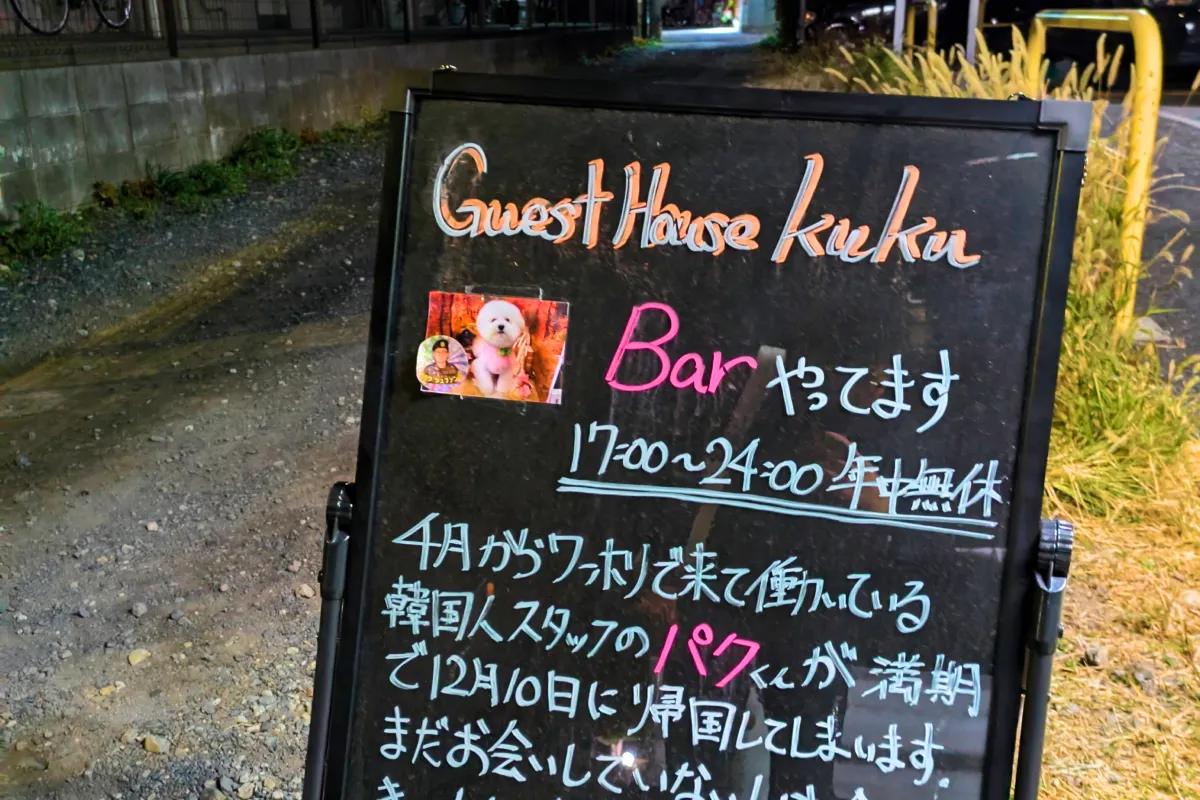 Guest House kuku
Bar やってます
17:00~24:00 年中無休
4月からワーホリで来て働いている
韓国人スタッフのパクくんが満期
で12月10日に帰国してしまいます.
まだお会いしていない